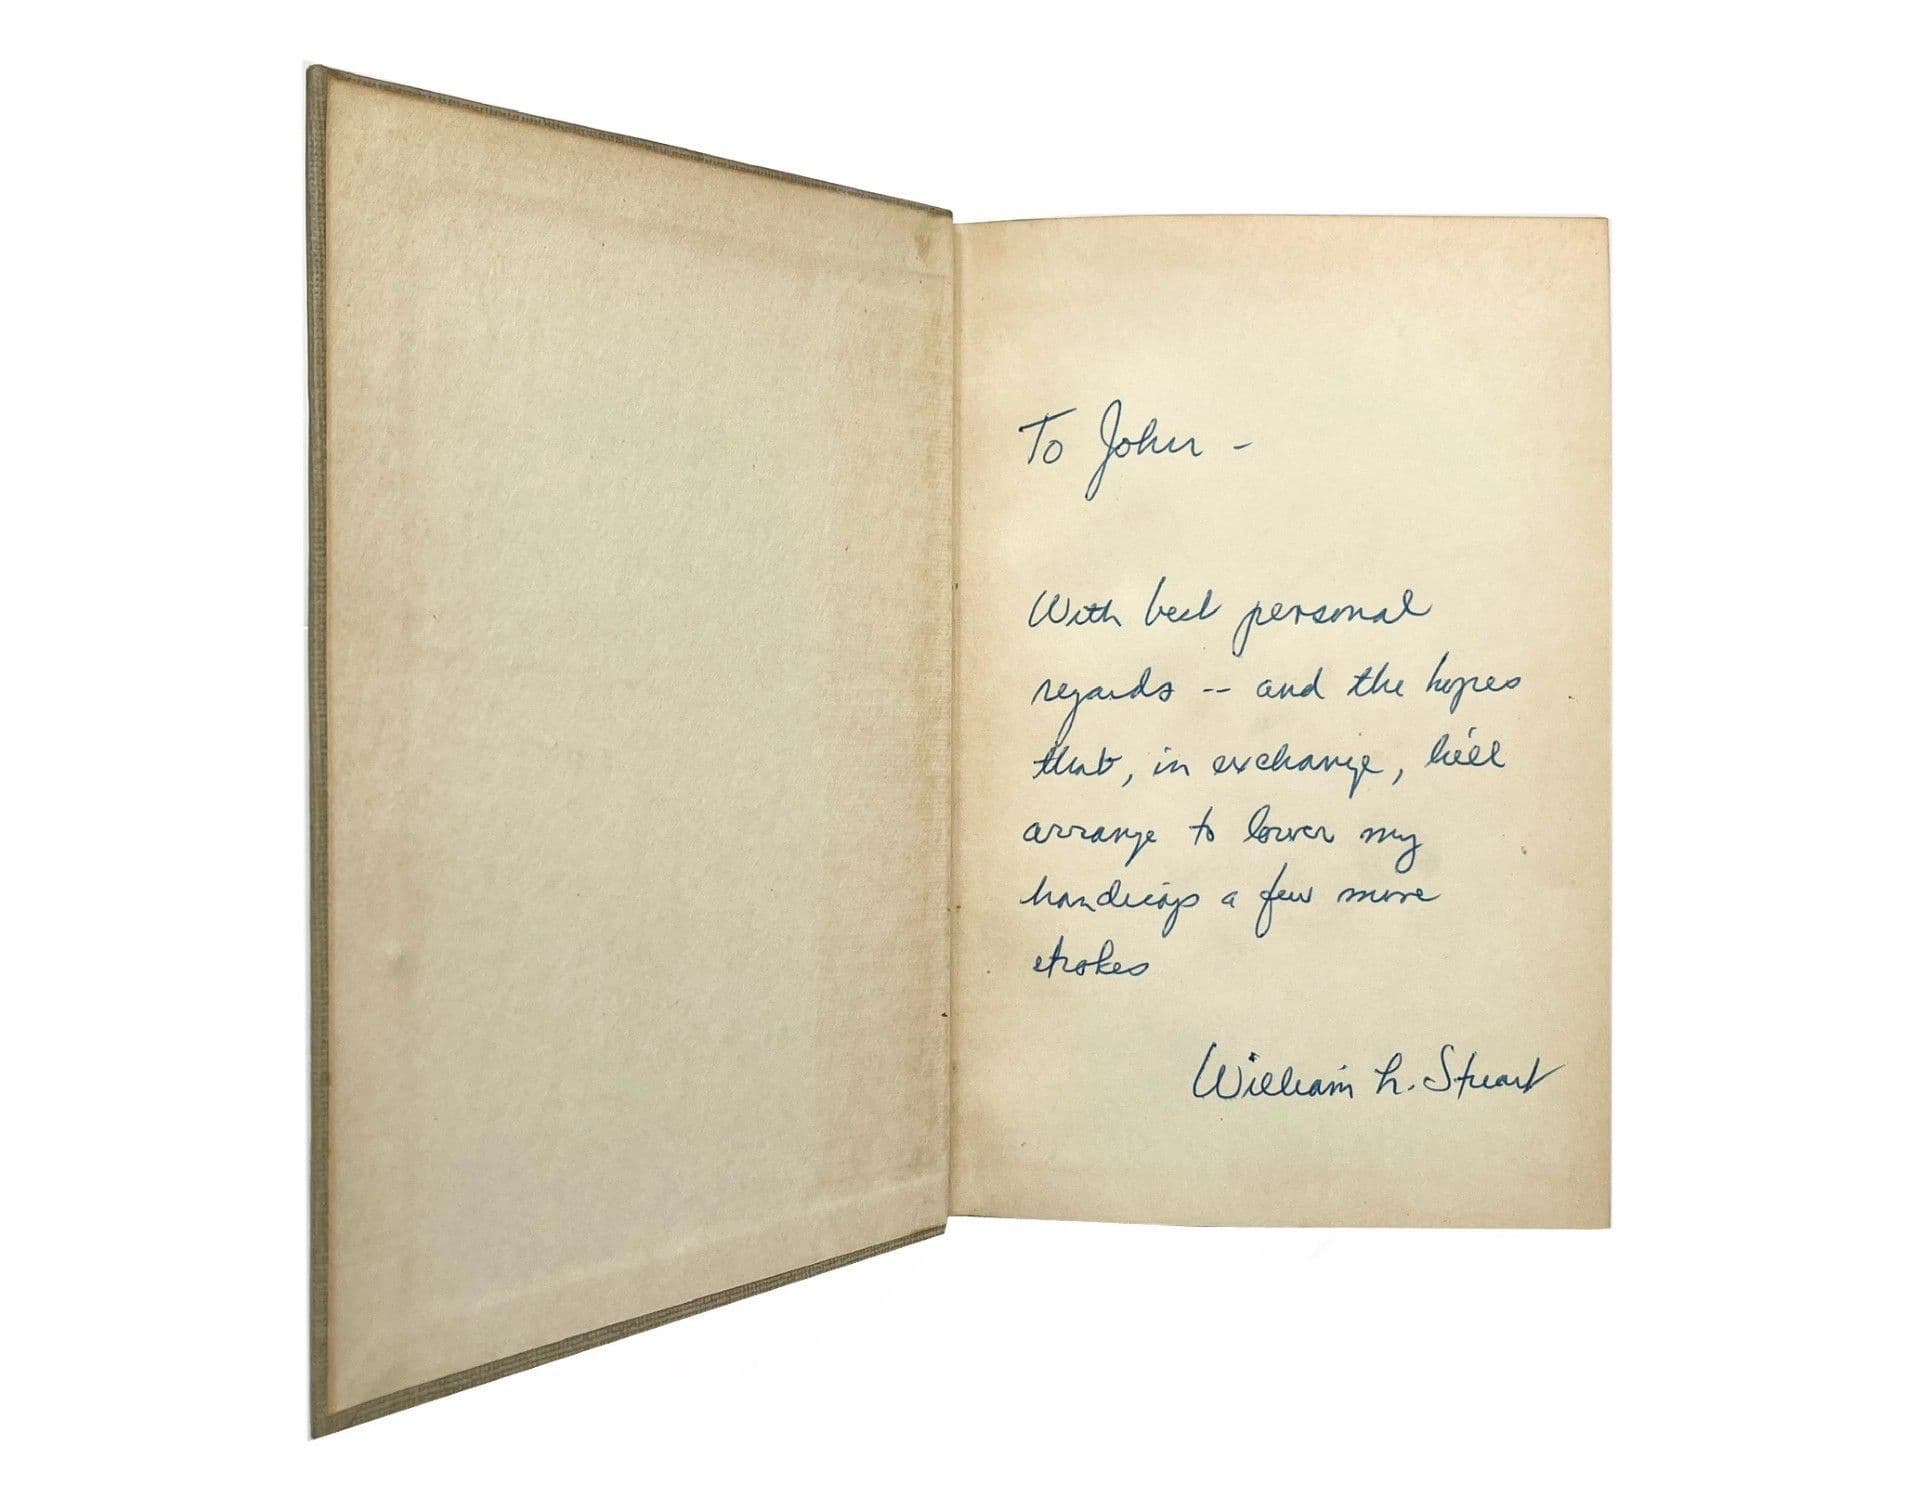 To John -
With best personal
regards -- and the hopes
that, in exchange, he'll
arrange to lower my
handicap a few more
strokes
William h. Stuart